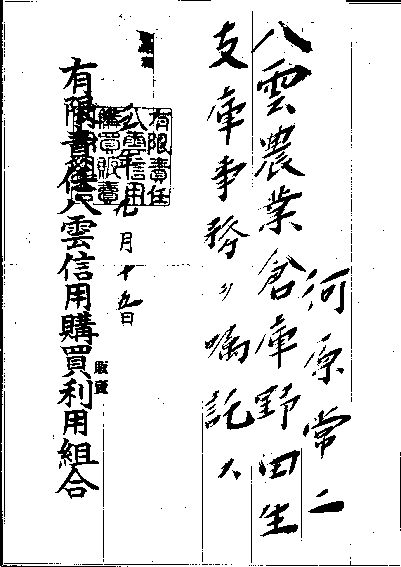 河原常二
八雲農業倉庫野田生
支庫事務ヲ嘱託ス
年九月十五日
有限責任八雲信用購買利用組合
販賣
有限責任
八雲信用
購買販賣